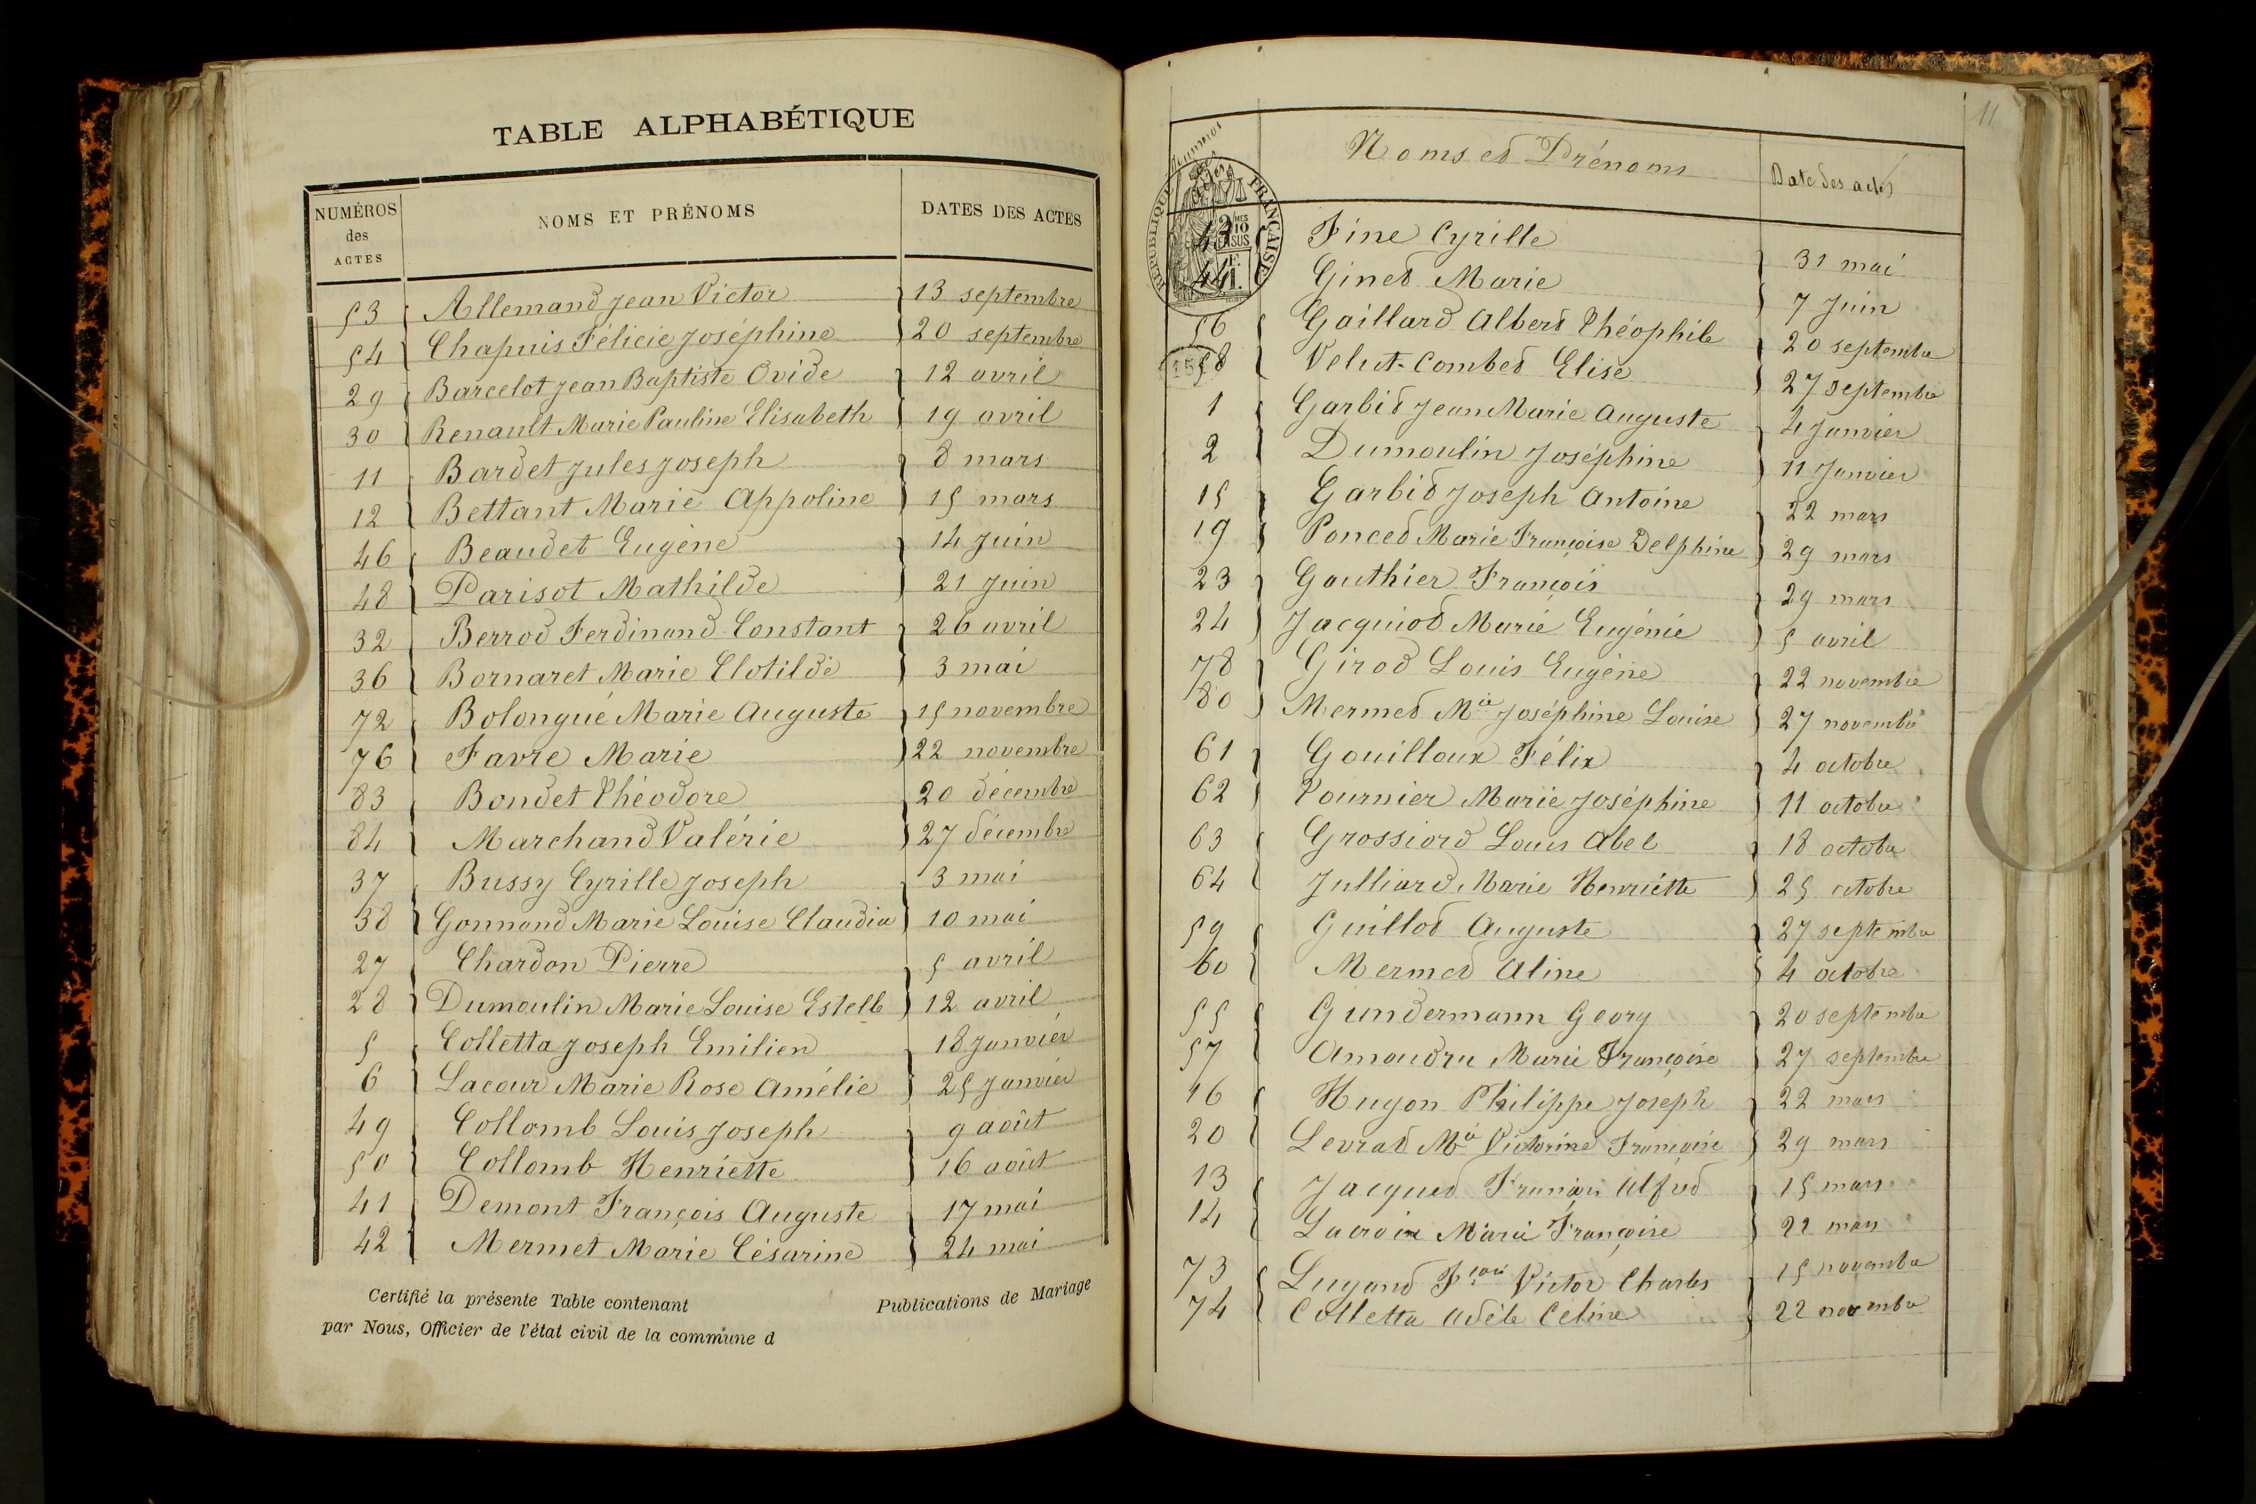 TABLE ALPHABÉTIQUE
NUMÉROS des ACTES NOMS ET PRÉNOMS DATES DES ACTES
53 Allemand Jean Victor 13 septembre
54 Chapuis Félicie Joséphine 20 septembre
29 Barcelot Jean Baptiste Ovide 12 avril
30 Renault Marie Pauline Elisabeth 19 avril
11 Bardet Jules Joseph 8 mars
12 Bettant Marie Appoline 15 mars
46 Beaudet Eugène 14 Juin
48 Parisot Mathilde 21 Juin
32 Berrod Ferdinand Constant 26 avril
36 Bornaret Marie Clotilde 3 mai
72 Bolongue Marie Auguste 15 novembre
76 Favre Marie 22 novembre
83 Bondet Théodore 20 décembre
84 Marchand Valérie 27 décembre
37 Bussy Cyrille Joseph 3 mai
38 Gonnand Marie Louise Claudia 10 mai
27 Chardon Pierre 5 avril
28 Dumoulin Marie Louise Estelle 12 avril
5 Colletta Joseph Emilien 18 Janvier
6 Lacour Marie Rose Amélie 25 Janvier
49 Collomb Louis Joseph 9 août
50 Collomb Henriette 16 août
41 Demont François Auguste 17 mai
42 Mermet Marie Césarine 24 mai
Certifié la présente Table contenant Publications de Mariage
par Nous, Officier de l'état civil de la commune d
11
Noms et Prénoms Date des actes
RÉPUBLIQUE FRANÇAISE
43 Fine Cyrille 31 mai
44 Ginet Marie 7 Juin
56 Gaillard Albert Théophile 20 septembre
58 Velut-Combet Elise 27 septembre
1 Garbit Jean Marie Auguste 4 Janvier
2 Dumoulin Joséphine 11 Janvier
15 Garbit Joseph Antoine 22 mars
19 Poncet Marie Françoise Delphine 29 mars
23 Gauthier François 29 mars
24 Jacquiot Marie Eugénie 5 avril
78 Girod Louis Eugène 22 novembre
80 Mermet Mie Joséphine Louise 27 novembre
61 Gouilloux Félix 4 octobre
62 Tournier Marie Joséphine 11 octobre
63 Grossiord Louis Abel 18 octobre
64 Julliard Marie Henriette 25 octobre
59 Guillot Auguste 27 septembre
60 Mermet Aline 4 octobre
55 Gundermann Georg 20 septembre
57 Amoudru Marie Françoise 27 septembre
16 Hugon Philippe Joseph 22 mars
20 Levrat Mie Victorine Françoise 29 mars
13 Jacquet François Alfred 15 mars
14 Lacroix Marie Françoise 22 mars
73 Lugand Fçois Victor Charles 15 novembre
74 Colletta Adèle Celine 22 novembre